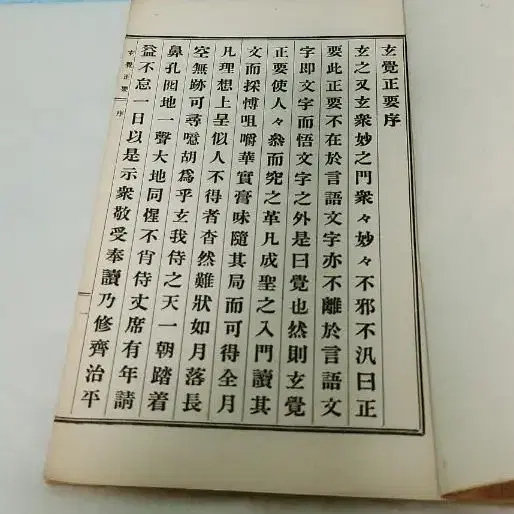 玄覺正要序
玄之又玄衆妙之門衆々妙々不邪不汎曰正
要此正要不在於言語文字亦不離於言語文
字卽文字而悟文字之外是曰覺也然則玄覺
正要使人々叅而究之革凡成聖之入門讀其
文而採愽咀嚼華實膏味隨其局而可得全月
凡理想上呈似人不得者杳然難狀如月落長
空無跡可尋噫胡爲乎玄我侍之天一朝踏着
鼻孔囮地一聲大地同惺不肖侍丈席有年請
益不忘一日以是示衆敬受奉讀乃修齊治平
玄覺正要 序
一